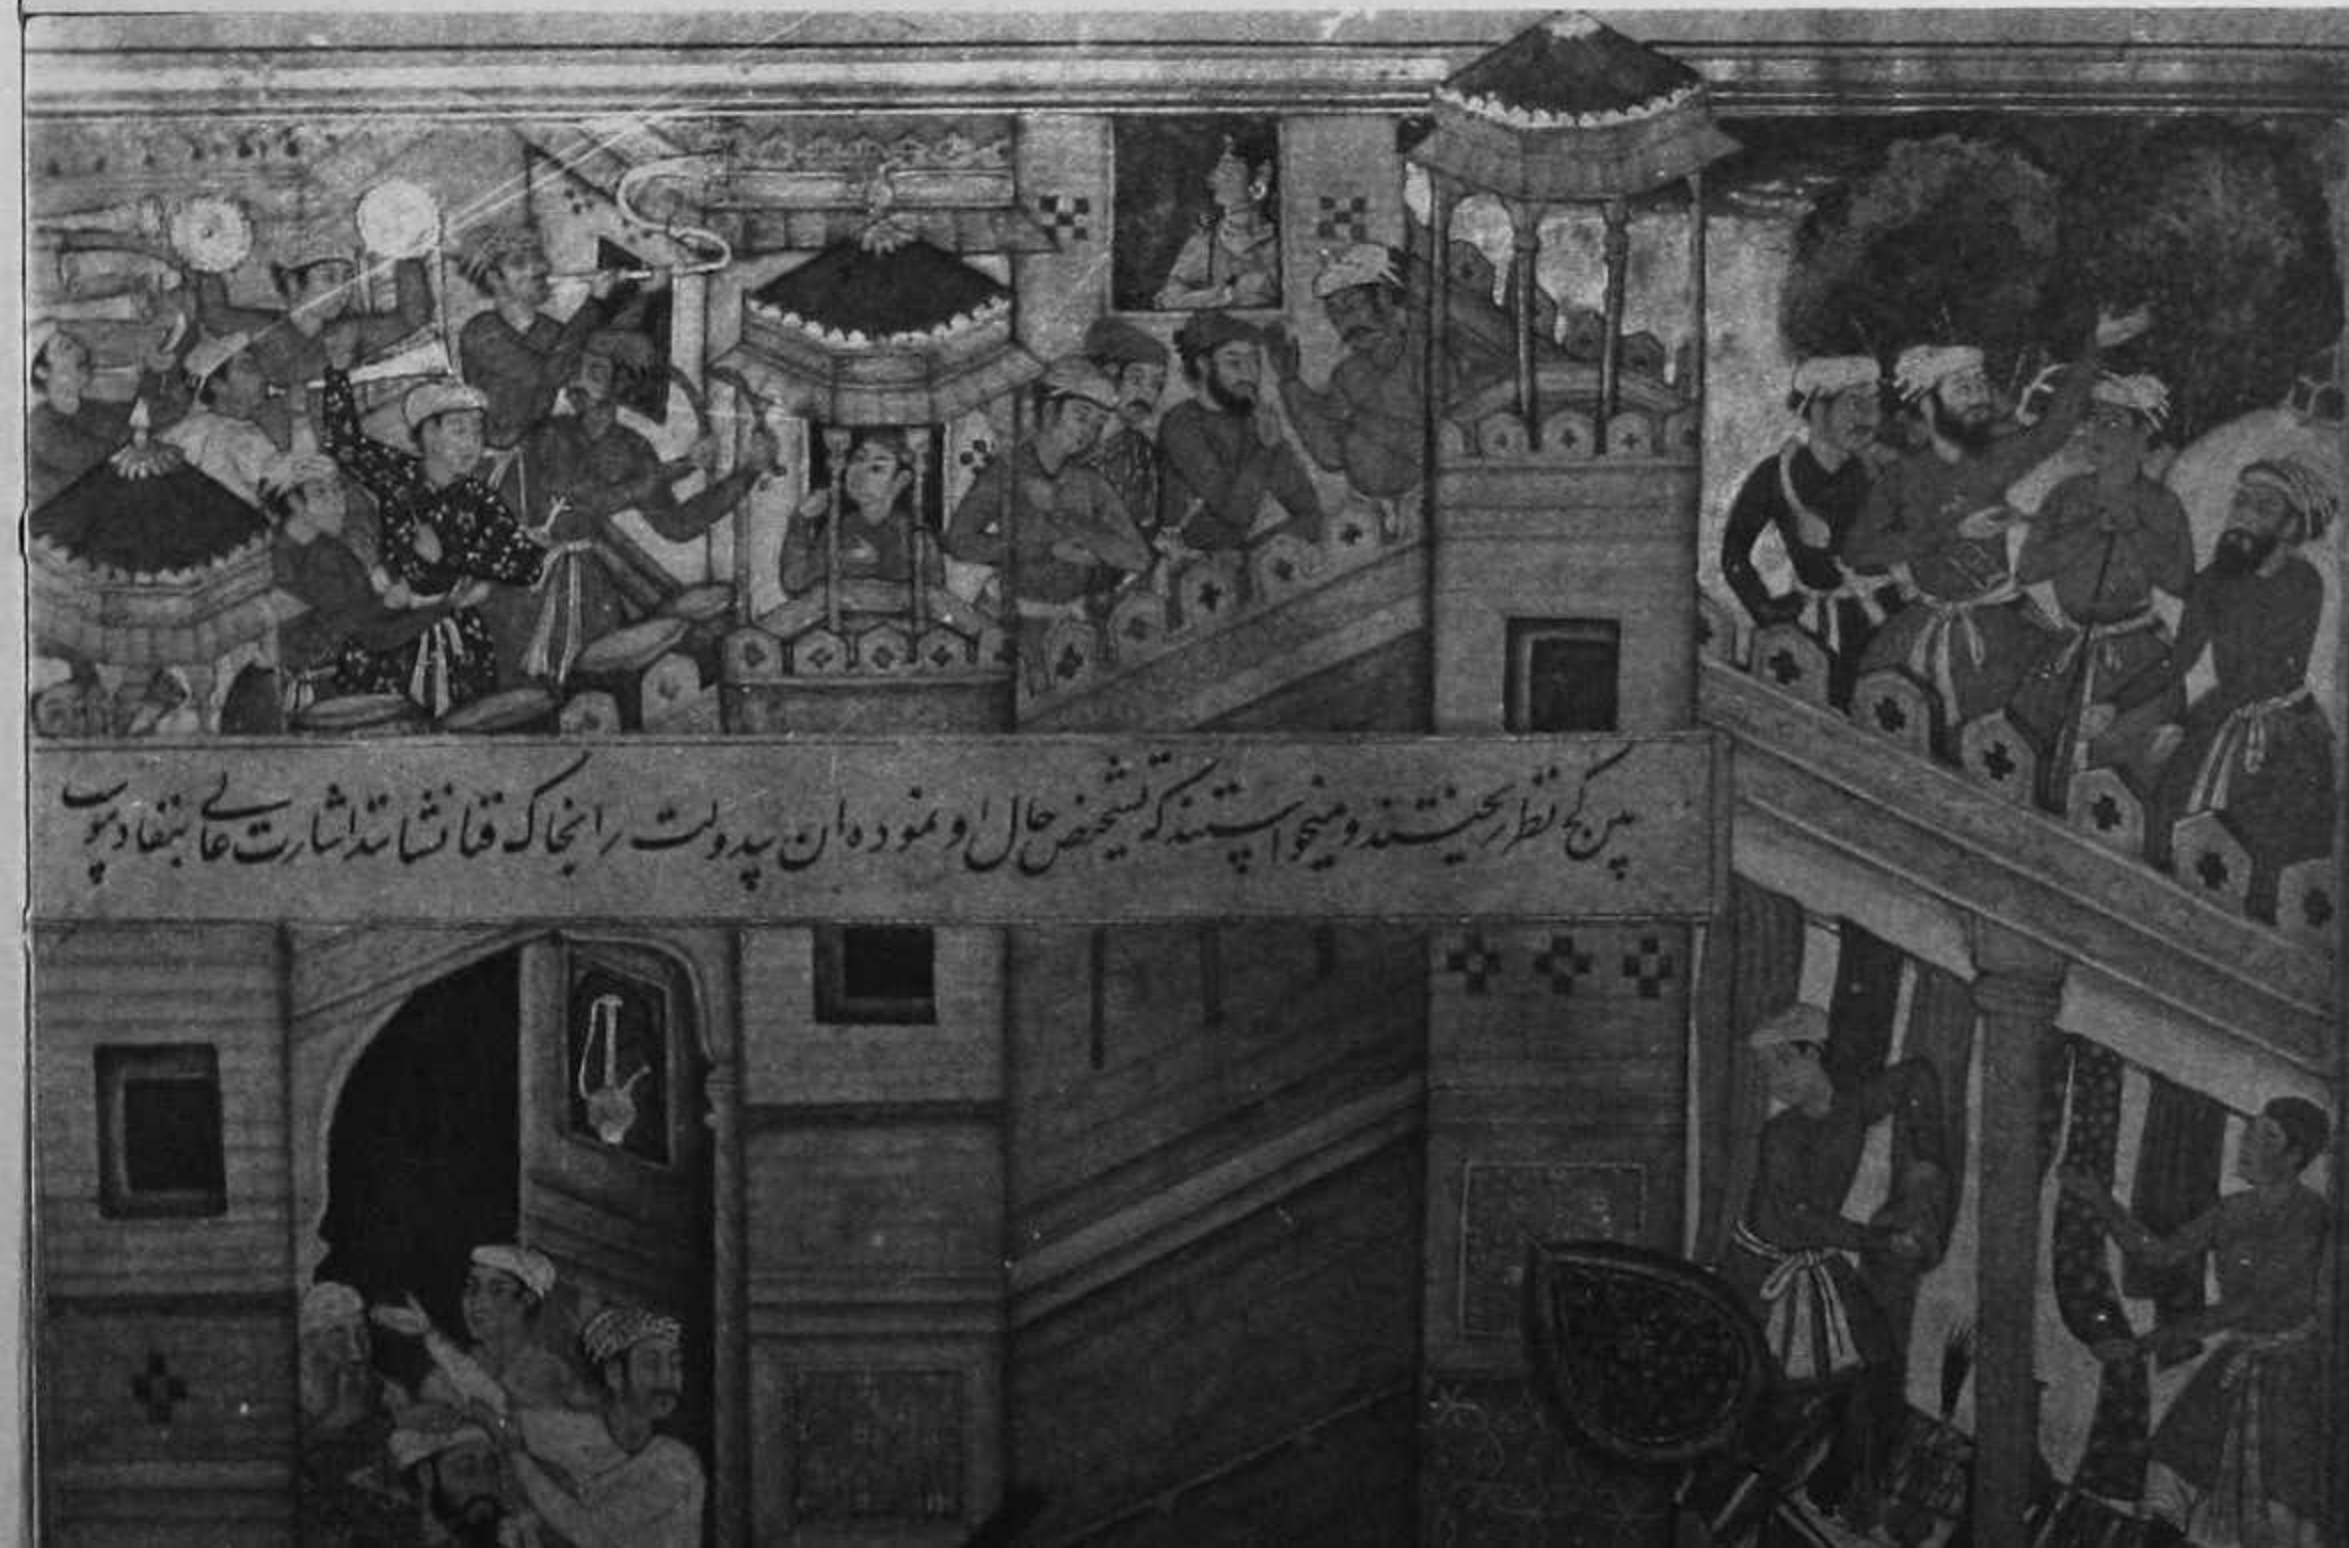 پس کج نظر ریختند و میخواستند که تشخیص حال او نموده ان بیدولت را بخاک فنا نشانند اشارت عالی بنفاد پیوست